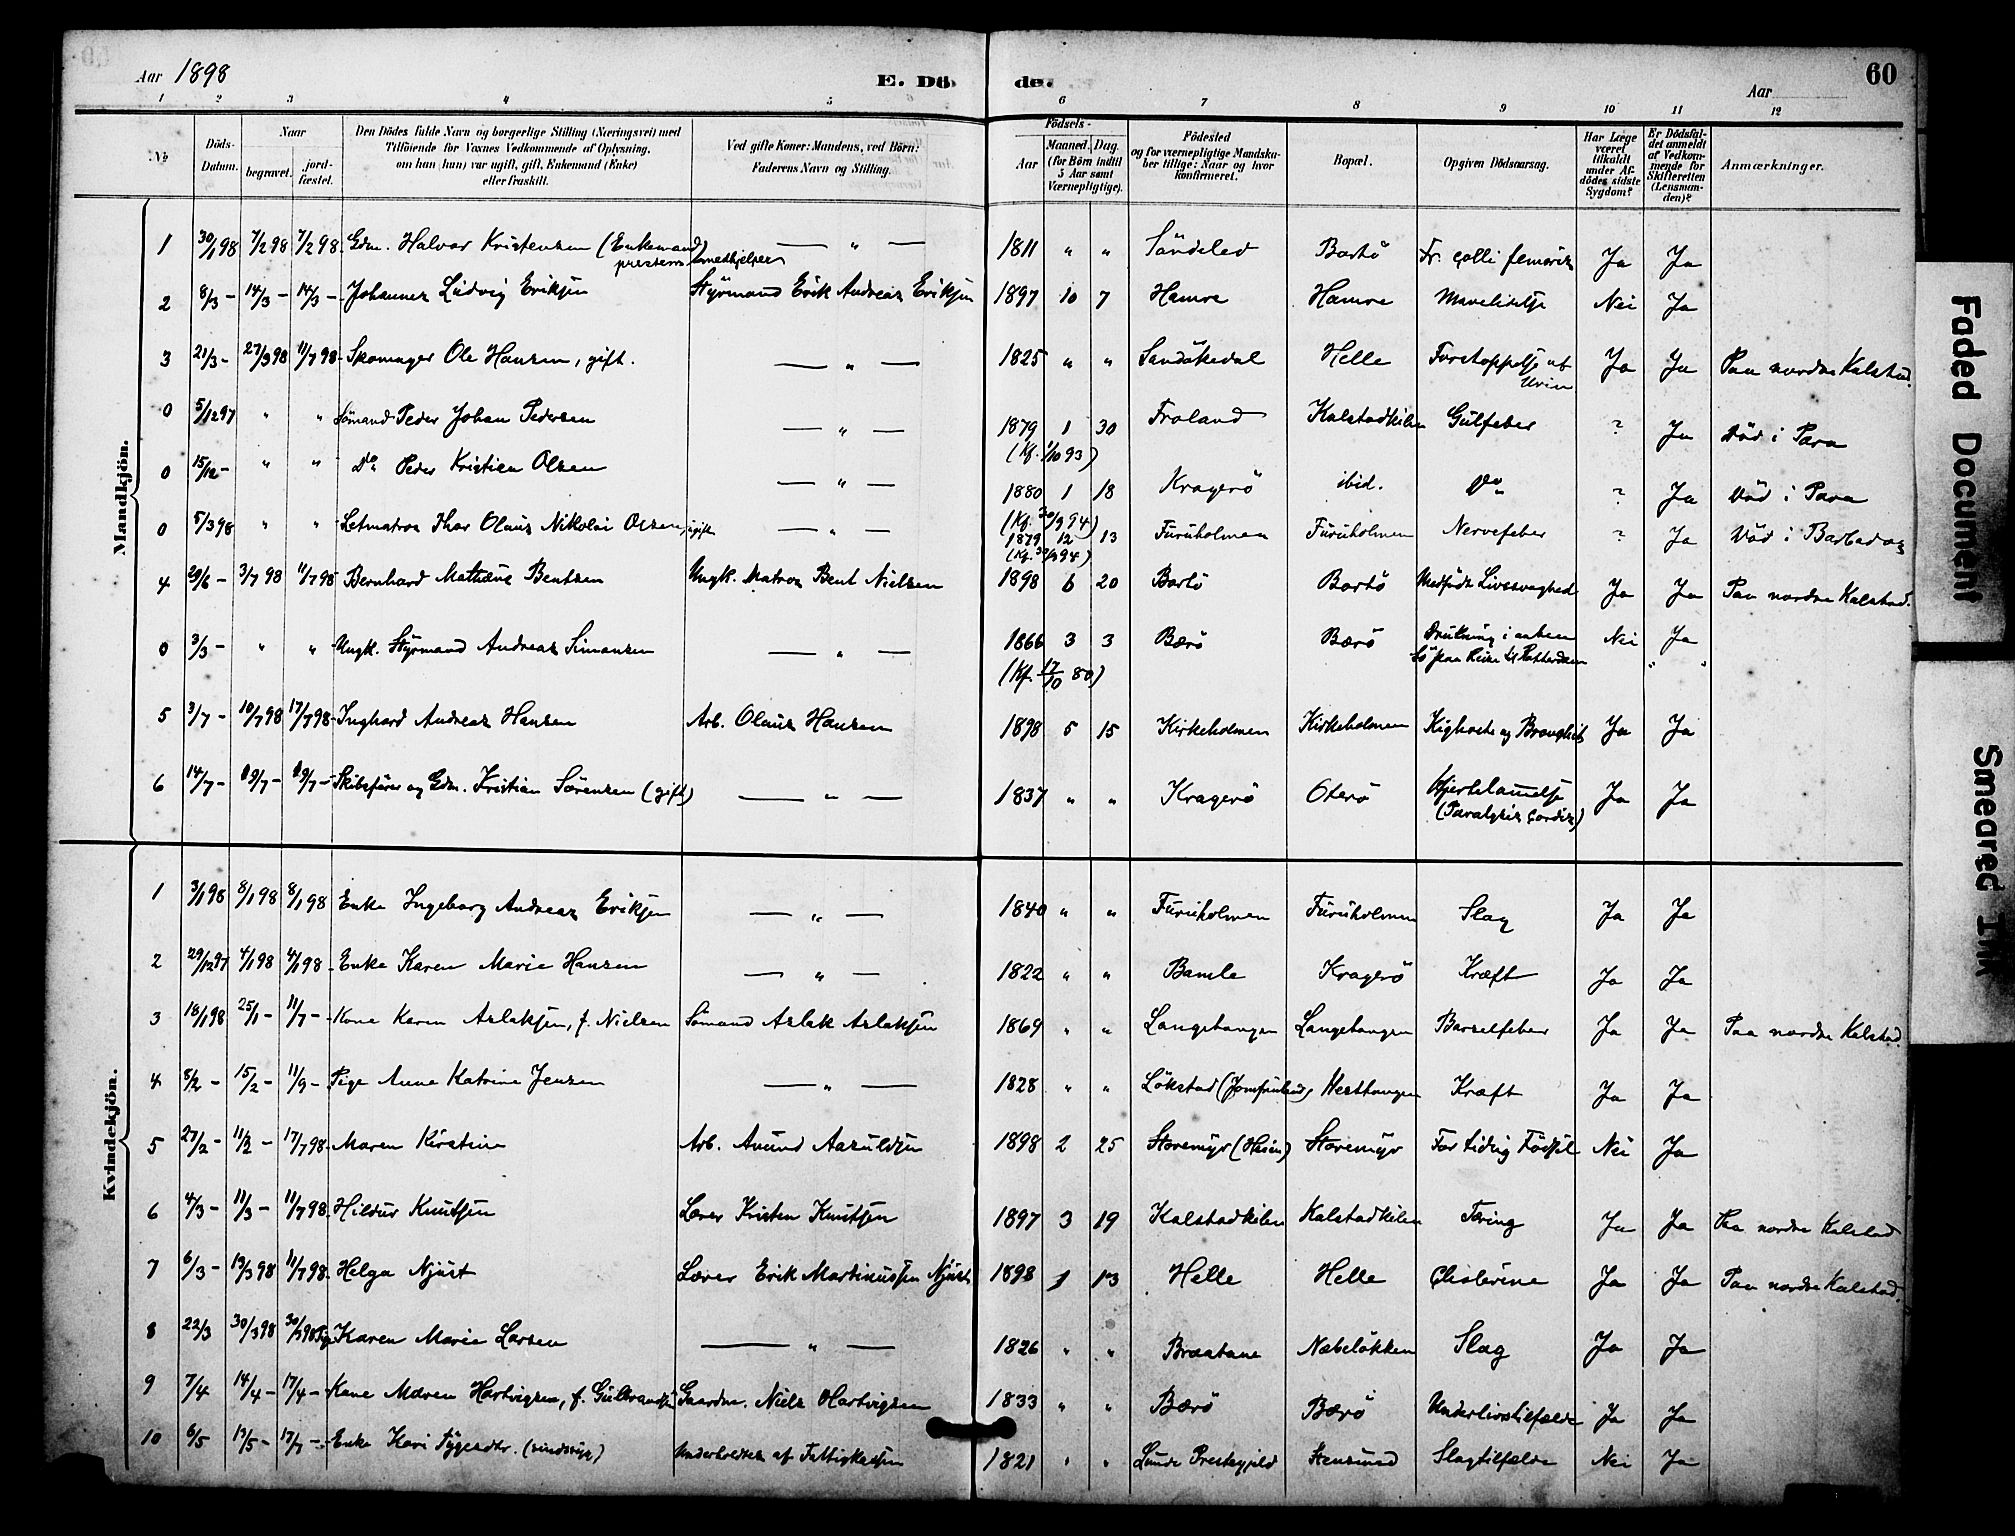 Aar 1898
E. Döde.
60
Aar
1 2 3 4 5 6 7 8 9 10 11 12
№
Döds-Datum.
Naar
begravet.
jord-fæstet.
Den Dödes fulde Navn og borgerlige Stilling (Næringsvei) med
Tilföiende for Voxnes Vedkommende af Oplysning,
om han (hun) var ugift, gift, Enkemand (Enke)
eller fraskilt.
Ved gifte Koner: Mandens, ved Börn:
Faderens Navn og Stilling.
Födsels-
Aar
Maaned. Dag.
(for Börn indtil
5 Aar samt
Værnepligtige).
Födested
og for værnepligtige Mandska-
ber tillige: Naar og hvor
konfirmeret.
Bopæl.
Opgiven Dödsaarsag.
Har Læge
været
tilkaldt
under Af-
dödes sidste
Sygdom?
Er Dödsfal-
det anmeldt
af Vedkom-
mende for
Skifteretten
(Lensman-
den)?
Anmærkninger.
Mandkjön.
1 30/1 98 7/2 98 7/2 98 Gdm. Halvor Kristensen (Enkemand) — " — 1811 " " Söndeled Bartö Fr. colli femoris Ja Ja
prestens medhjelper
2 8/3 - 14/3 - 14/3 - Johannes Ludvig Eriksen Styrmand Erik Andreas Eriksen 1897 10 7 Hamre Hamre Mavelidelse Nei Ja
3 21/3 - 27/3 98 11/7 98 Skomager Ole Hansen, gift. — " — 1825 " " Sandökedal Helle Forstoppelse af Urin Ja Ja Paa nordre Kalstad.
0 5/12 97 " " Sömand Peder Johan Pedersen — " — 1879 1 30 Froland Kalstadkilen Gulfeber ? Ja Död i Para
(Kf. 1/10 93)
0 15/12 - " " Do Peder Kristian Olsen — " — 1880 1 18 Kragerö ibid. Do ? Ja Död i Para
(Kf. 30/9 94)
0 5/3 98 " " Letmatros Thor Olaus Nikolai Olsen, ugift — " — 1879 12 13 Furuholmen Furuholmen Nervefeber ? Ja Död i Barbados
(Kf. 30/9 94)
4 20/6 - 3/7 98 11/7 98 Bernhard Mathæus Bentsen Ungk. Matros Bent Nielsen 1898 6 20 Bartö Bartö Medfödt Livssvaghed Ja Ja Paa nordre Kalstad.
0 3/3 - " " Ungk. Styrmand Andreas Simonsen — " — 1866 3 3 Bærö Bærö Drukning i aaben Nei Ja
(Kf. 17/10 80) Sö paa Reise til Rotterdam " "
5 3/7 - 10/7 98 17/7 98 Inghard Andreas Hansen Arb. Olaus Hansen 1898 5 15 Kirkeholmen Kirkeholmen Kighoste og Bronghit Ja Ja
6 14/7 - 19/7 - 19/7 - Skibsfører og Gdm. Kristian Sörensen (gift) — " — 1837 " " Kragerö Oterö Hjertelammelse Ja Ja
(Paralysis cordis)
Kvindekjön.
1 3/1 98 8/1 98 8/1 98 Enke Ingeborg Andreas Eriksen — " — 1840 " " Furuholmen Furuholmen Slag Ja Ja
2 29/12 97 4/1 98 4/1 98 Enke Karen Marie Hansen — " — 1822 " " Bamle Kragerö Kræft Ja Ja
3 18/1 98 25/1 - 11/7 - Kone Karen Aslaksen, f. Nielsen Sömand Aslak Aslaksen 1869 " " Langetangen Langetangen Barselfeber Ja Ja Paa nordre Kalstad.
4 8/2 - 15/2 - 11/9 - Pige Anne Katrine Jensen — " — 1828 " " Lökstad (Jomfruland) Westtangen Kræft Ja Ja
5 27/2 - 11/3 - 17/7 98 Maren Kirstine Arb. Anund Aasuldsen 1898 2 25 Storemyr Storemyr For tidlig Födsel Nei Ja
6 4/3 - 11/3 - 11/7 98 Hildur Knutsen Lærer Kristen Knutsen 1897 3 19 Kalstadkilen Kalstadkilen Tæring Ja Ja Paa nordre Kalstad
7 6/3 - 13/3 98 11/7 98 Helga Njust Lærer Erik Martinussen Njust 1898 1 13 Helle Helle Cholerine Ja Ja Paa nordre Kalstad.
8 22/3 30/3 98 30/3 98 Pg. Karen Marie Larsen — " — 1826 " " Braatane Nabelökken Slag Ja Ja
9 7/4 14/4 - 17/4 - Kone Maren Hartvigsen, f. Gulbrandsen Gaardm. Niels Hartvigsen 1833 " " Bærö Bærö Underlivstilfælde Ja Ja
10 6/5 13/5 - 17/7 - Enke Kari Tygesdtr. (sindssyg) Underholdtes af Fattigkassen 1821 " " Lunde Prestegjeld Stensund Slagtilfælde Nei Ja
Faded Document
Smeared Ink